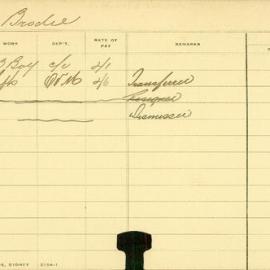 Brodie
WORK DEP'T. RATE OF PAY REMARKS
Boy c/c 2/1 Transferred
2/6 Resigned
Dismissed
SYDNEY